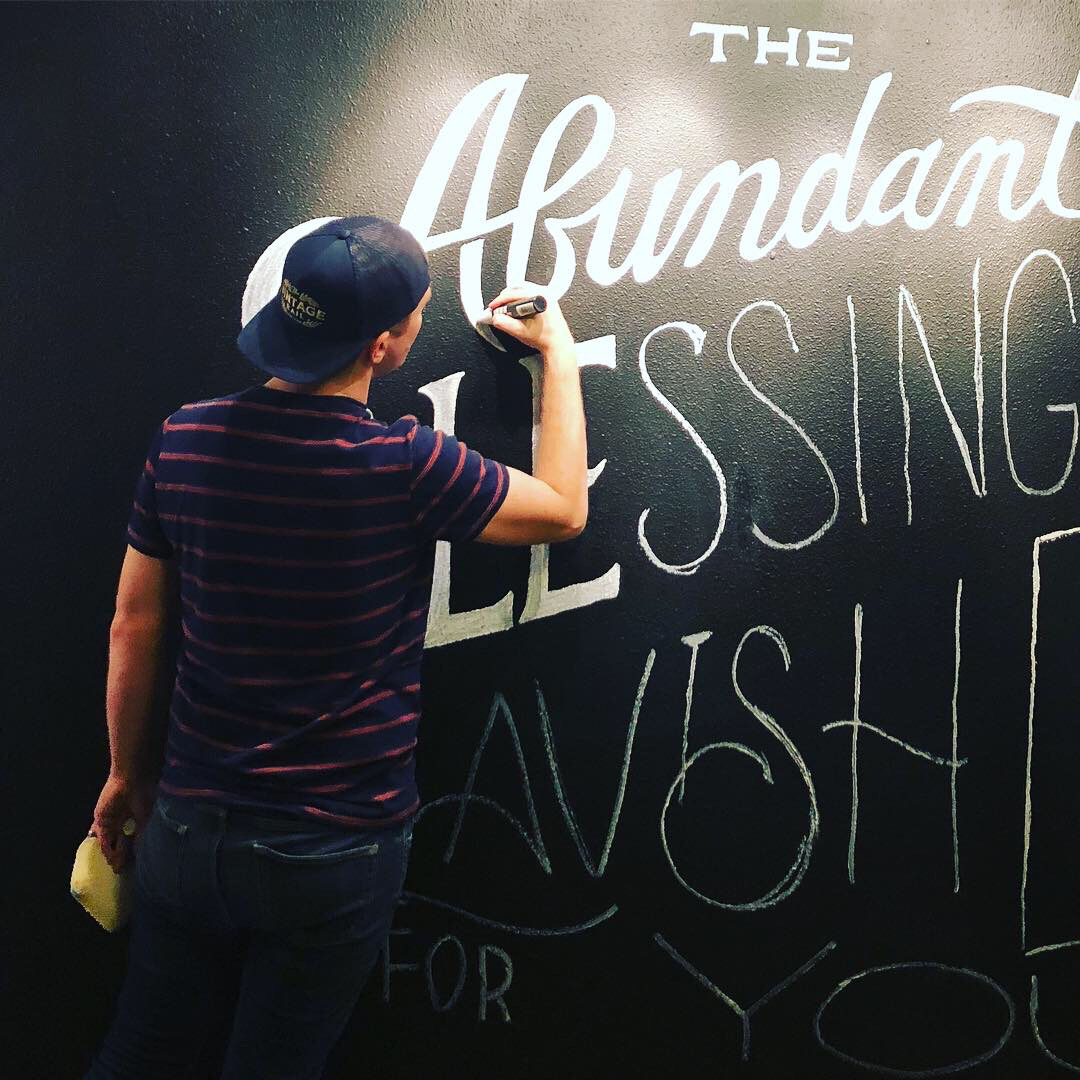 THE
Abundant
LESSING
LAVISH
FOR YOU